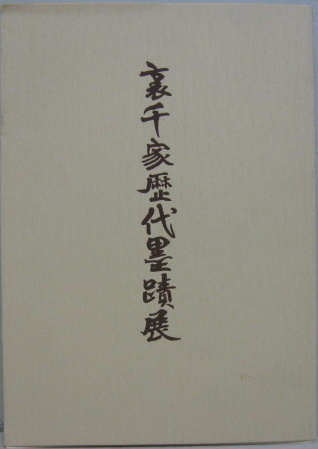 裏千家歴代墨蹟展